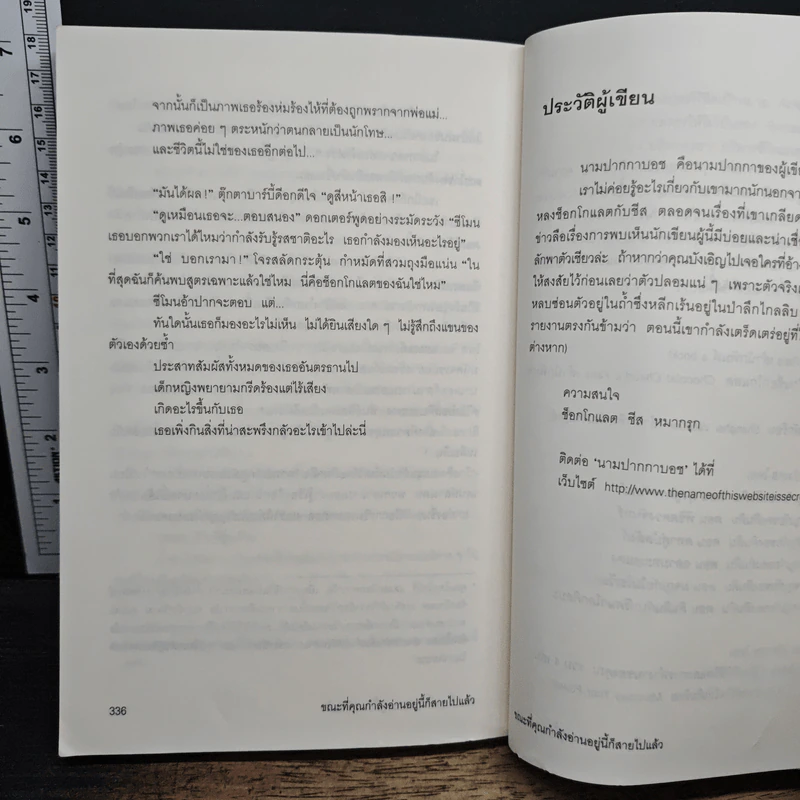 จากนั้นก็เป็นภาพเธอร้องห่มร้องไห้ที่ต้องถูกพรากจากพ่อแม่...
ภาพเธอค่อย ๆ ตระหนักว่าตนกลายเป็นนักโทษ...
และชีวิตนี้ไม่ใช่ของเธออีกต่อไป...
“มันได้ผล!” ตุ๊กตาบาร์บี้คือกดีใจ “ดูสีหน้าเธอสิ!”
“ดูเหมือนเธอจะ...ตอบสนอง” ดอกเตอร์พูดอย่างระมัดระวัง “ซีโมน
เธอบอกพวกเราได้ไหมว่ากำลังรับรู้รสชาติอะไร เธอกำลังมองเห็นอะไรอยู่”
“ใช่ บอกเรามา!” โจรสลัดกระตุ้น กำหมัดที่สวมถุงมือแน่น “ใน
ที่สุดฉันก็ค้นพบสูตรเฉพาะแล้วใช่ไหม นี่คือช็อกโกแลตของฉันใช่ไหม”
ซีโมนอ้าปากจะตอบ แต่...
ทันใดนั้นเธอก็มองอะไรไม่เห็น ไม่ได้ยินเสียงใด ๆ ไม่รู้สึกถึงแขนของ
ตัวเองด้วยซ้ำ
ประสาทสัมผัสทั้งหมดของเธออันตรธานไป
เด็กหญิงพยายามกรีดร้องแต่ไร้เสียง
เกิดอะไรขึ้นกับเธอ
เธอเพิ่งกินสิ่งที่น่าสะพรึงกลัวอะไรเข้าไปล่ะนี่
336
ขณะที่คุณกำลังอ่านอยู่นี้ก็สายไปแล้ว
ประวัติผู้เขียน
นามปากกาบอช คือนามปากกาของผู้เขีย
เราไม่ค่อยรู้อะไรเกี่ยวกับเขามากนักนอกจา
หลงช็อกโกแลตกับชีส ตลอดจนเรื่องที่เขาเกลียด
ข่าวลือเรื่องการพบเห็นนักเขียนผู้นี้มีบ่อยและน่าเชื่
ลักพาตัวเชียวล่ะ ถ้าหากว่าคุณบังเอิญไปเจอใครที่อ้าง
ให้สงสัยไว้ก่อนเลยว่าตัวปลอมแน่ ๆ เพราะตัวจริงเ
หลบซ่อนตัวอยู่ในถ้ำซึ่งหลีกเร้นอยู่ในป่าลึกไกลลิบ
รายงานตรงกันข้ามว่า ตอนนี้เขากำลังเตร็ดเตร่อยู่ที่
ต่างหาก)
ความสนใจ
ช็อกโกแลต ชีส หมากรุก
ติดต่อ ‘นามปากกาบอช’ ได้ที่
เว็บไซต์ http://www.thenameofthiswebsiteissecre
ขณะที่คุณกำลังอ่านอยู่นี้ก็สายไปแล้ว